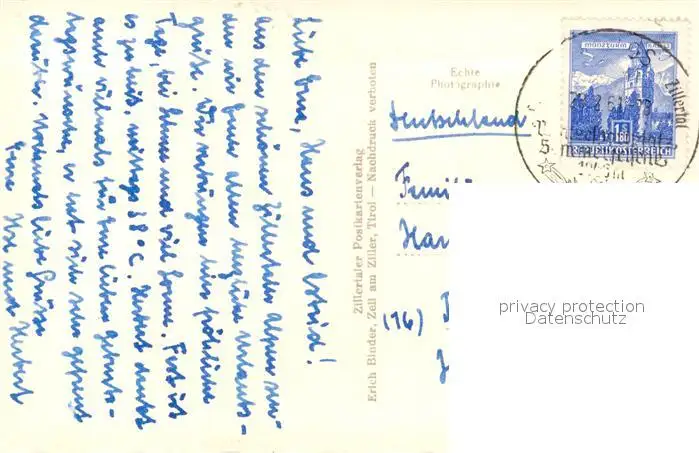 Liebe Erna, Hans und Astrid!
Aus den schönen Zillertaler Alpen sen-
den wir Euch allen herzliche Urlaubs-
grüße. Wir verbringen hier fröhliche
Tage, bei Sonne und viel Sonne. Fast ist
es zu heiß, mittags 38° C. Herbert dankt
auch vielmals für Eure lieben Geburts-
tagswünsche, er hat sich sehr gefreut
darüber. Nochmals liebe Grüsse
Eure und Herbert
Zillertaler Postkartenverlag
Erich Binder, Zell am Ziller, Tirol — Nachdruck verboten
Echte
Photographie
Deutschland
Famil
Har
(16)
MÜNZTURM HALL
S 1.80
REPUBLIK ÖSTERREICH
Zillertal
privacy protection
Datenschutz